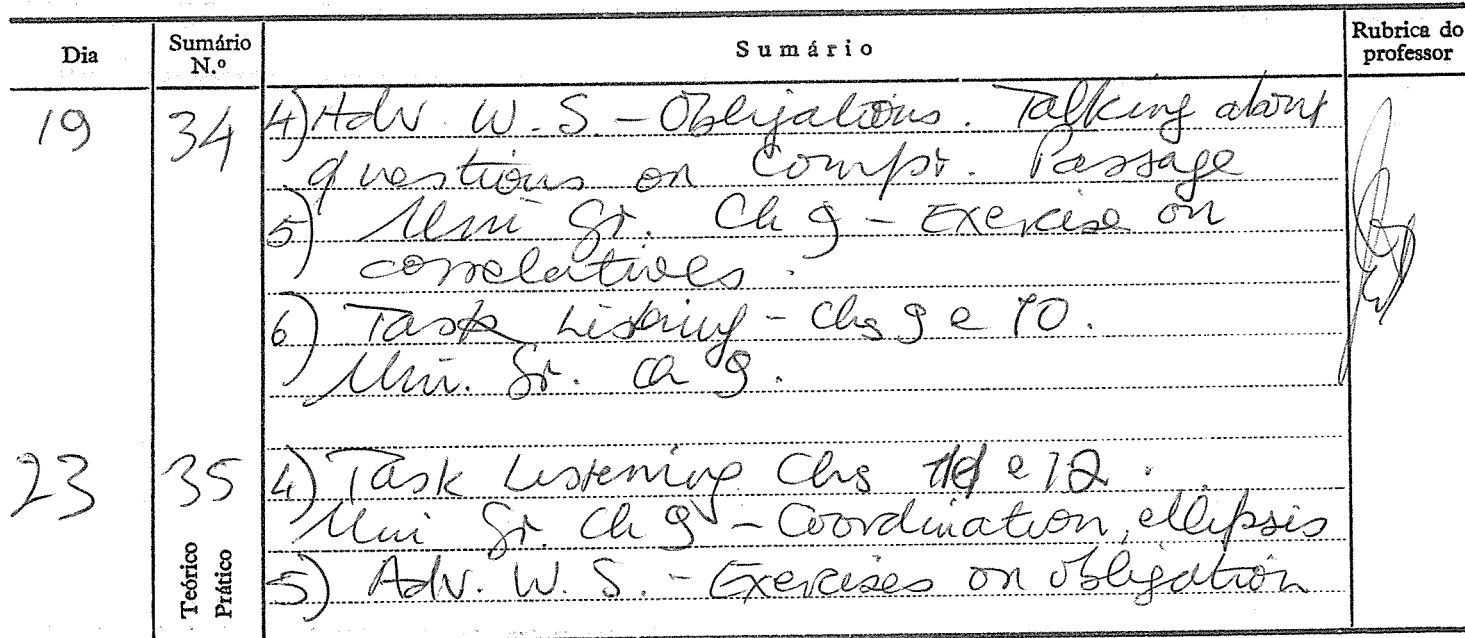 Dia Sumário N.º Sumário Rubrica do professor
19 34 4) Adv. W. S. - Obligations. Talking about
questions on Compr. Passage
5) Uni Gr. Ch 9 - Exercise on
correlatives.
6) Task Listening - Chs 9 e 10.
Uni. Gr. Ch 9.
23 35 4) Task Listening Chs 11 e 12.
Uni Gr. Ch 9 - Coordination, ellipsis
Teórico Prático 5) Adv. W. S. - Exercises on obligation